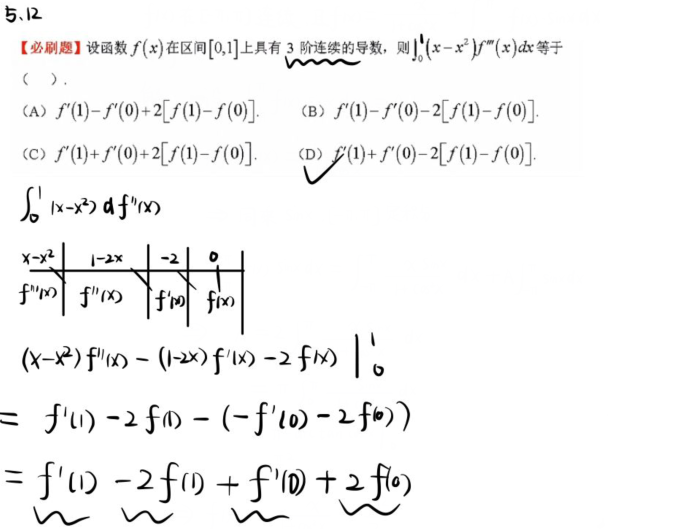 5.12
【必刷题】设函数 f(x) 在区间[0,1]上具有 3 阶连续的导数，则∫₀¹(x−x²)f'''(x)dx 等于
（ ）.
（A）f'(1)−f'(0)+2[f(1)−f(0)]. （B）f'(1)−f'(0)−2[f(1)−f(0)].
（C）f'(1)+f'(0)+2[f(1)−f(0)]. （D）f'(1)+f'(0)−2[f(1)−f(0)].
∫₀¹ (x−x²) d f''(x)
x−x² | 1−2x | −2 | 0
f'''(x) | f''(x) | f'(x) | f(x)
(x−x²) f''(x) − (1−2x) f'(x) − 2 f(x) |₀¹
= f'(1) −2 f(1) − (−f'(0) − 2 f(0))
= f'(1) −2 f(1) + f'(0) + 2 f(0)